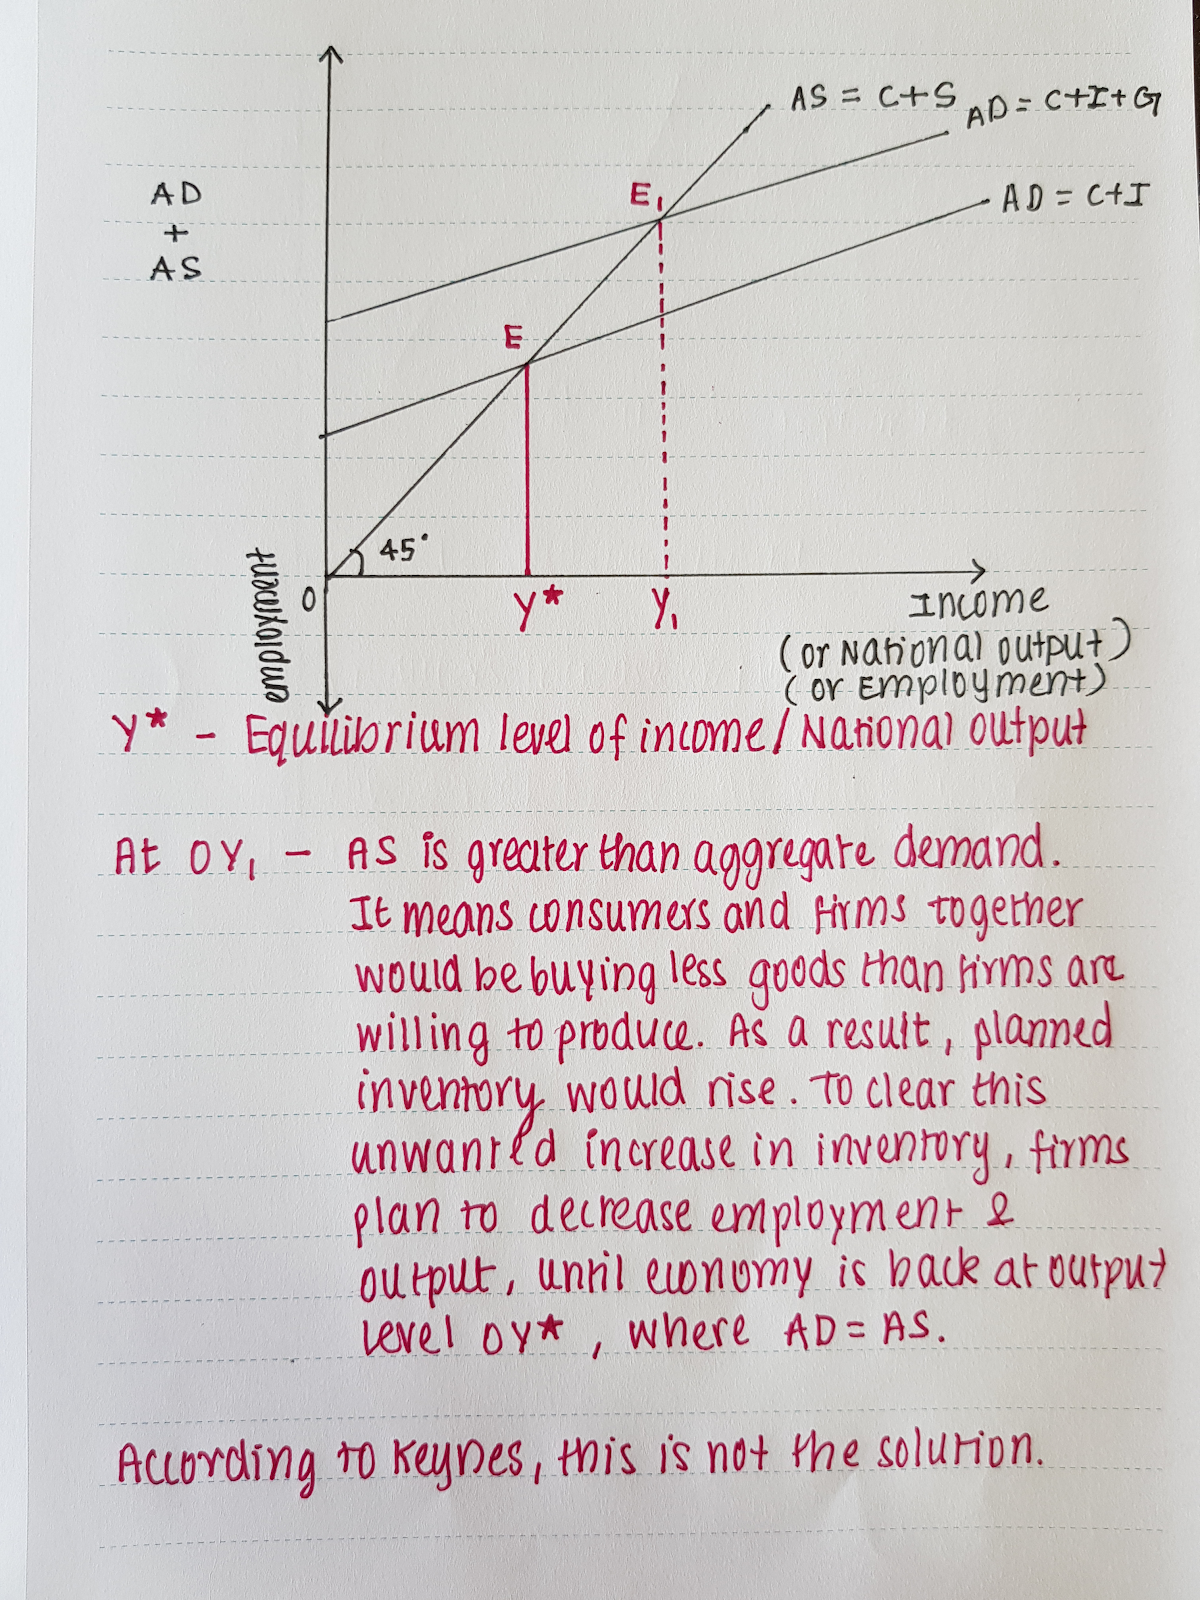 AS = C+S
AD = C+I+G
AD = C+I
AD
+
AS
E₁
E
45°
employment
O
Y*
Y₁
Income
(or National output)
(or Employment)
Y* - Equilibrium level of income/National output
At OY₁ - AS is greater than aggregate demand.
It means consumers and firms together
would be buying less goods than firms are
willing to produce. As a result, planned
inventory would rise. To clear this
unwanted increase in inventory, firms
plan to decrease employment &
output, until economy is back at output
level OY*, where AD = AS.
According to Keynes, this is not the solution.